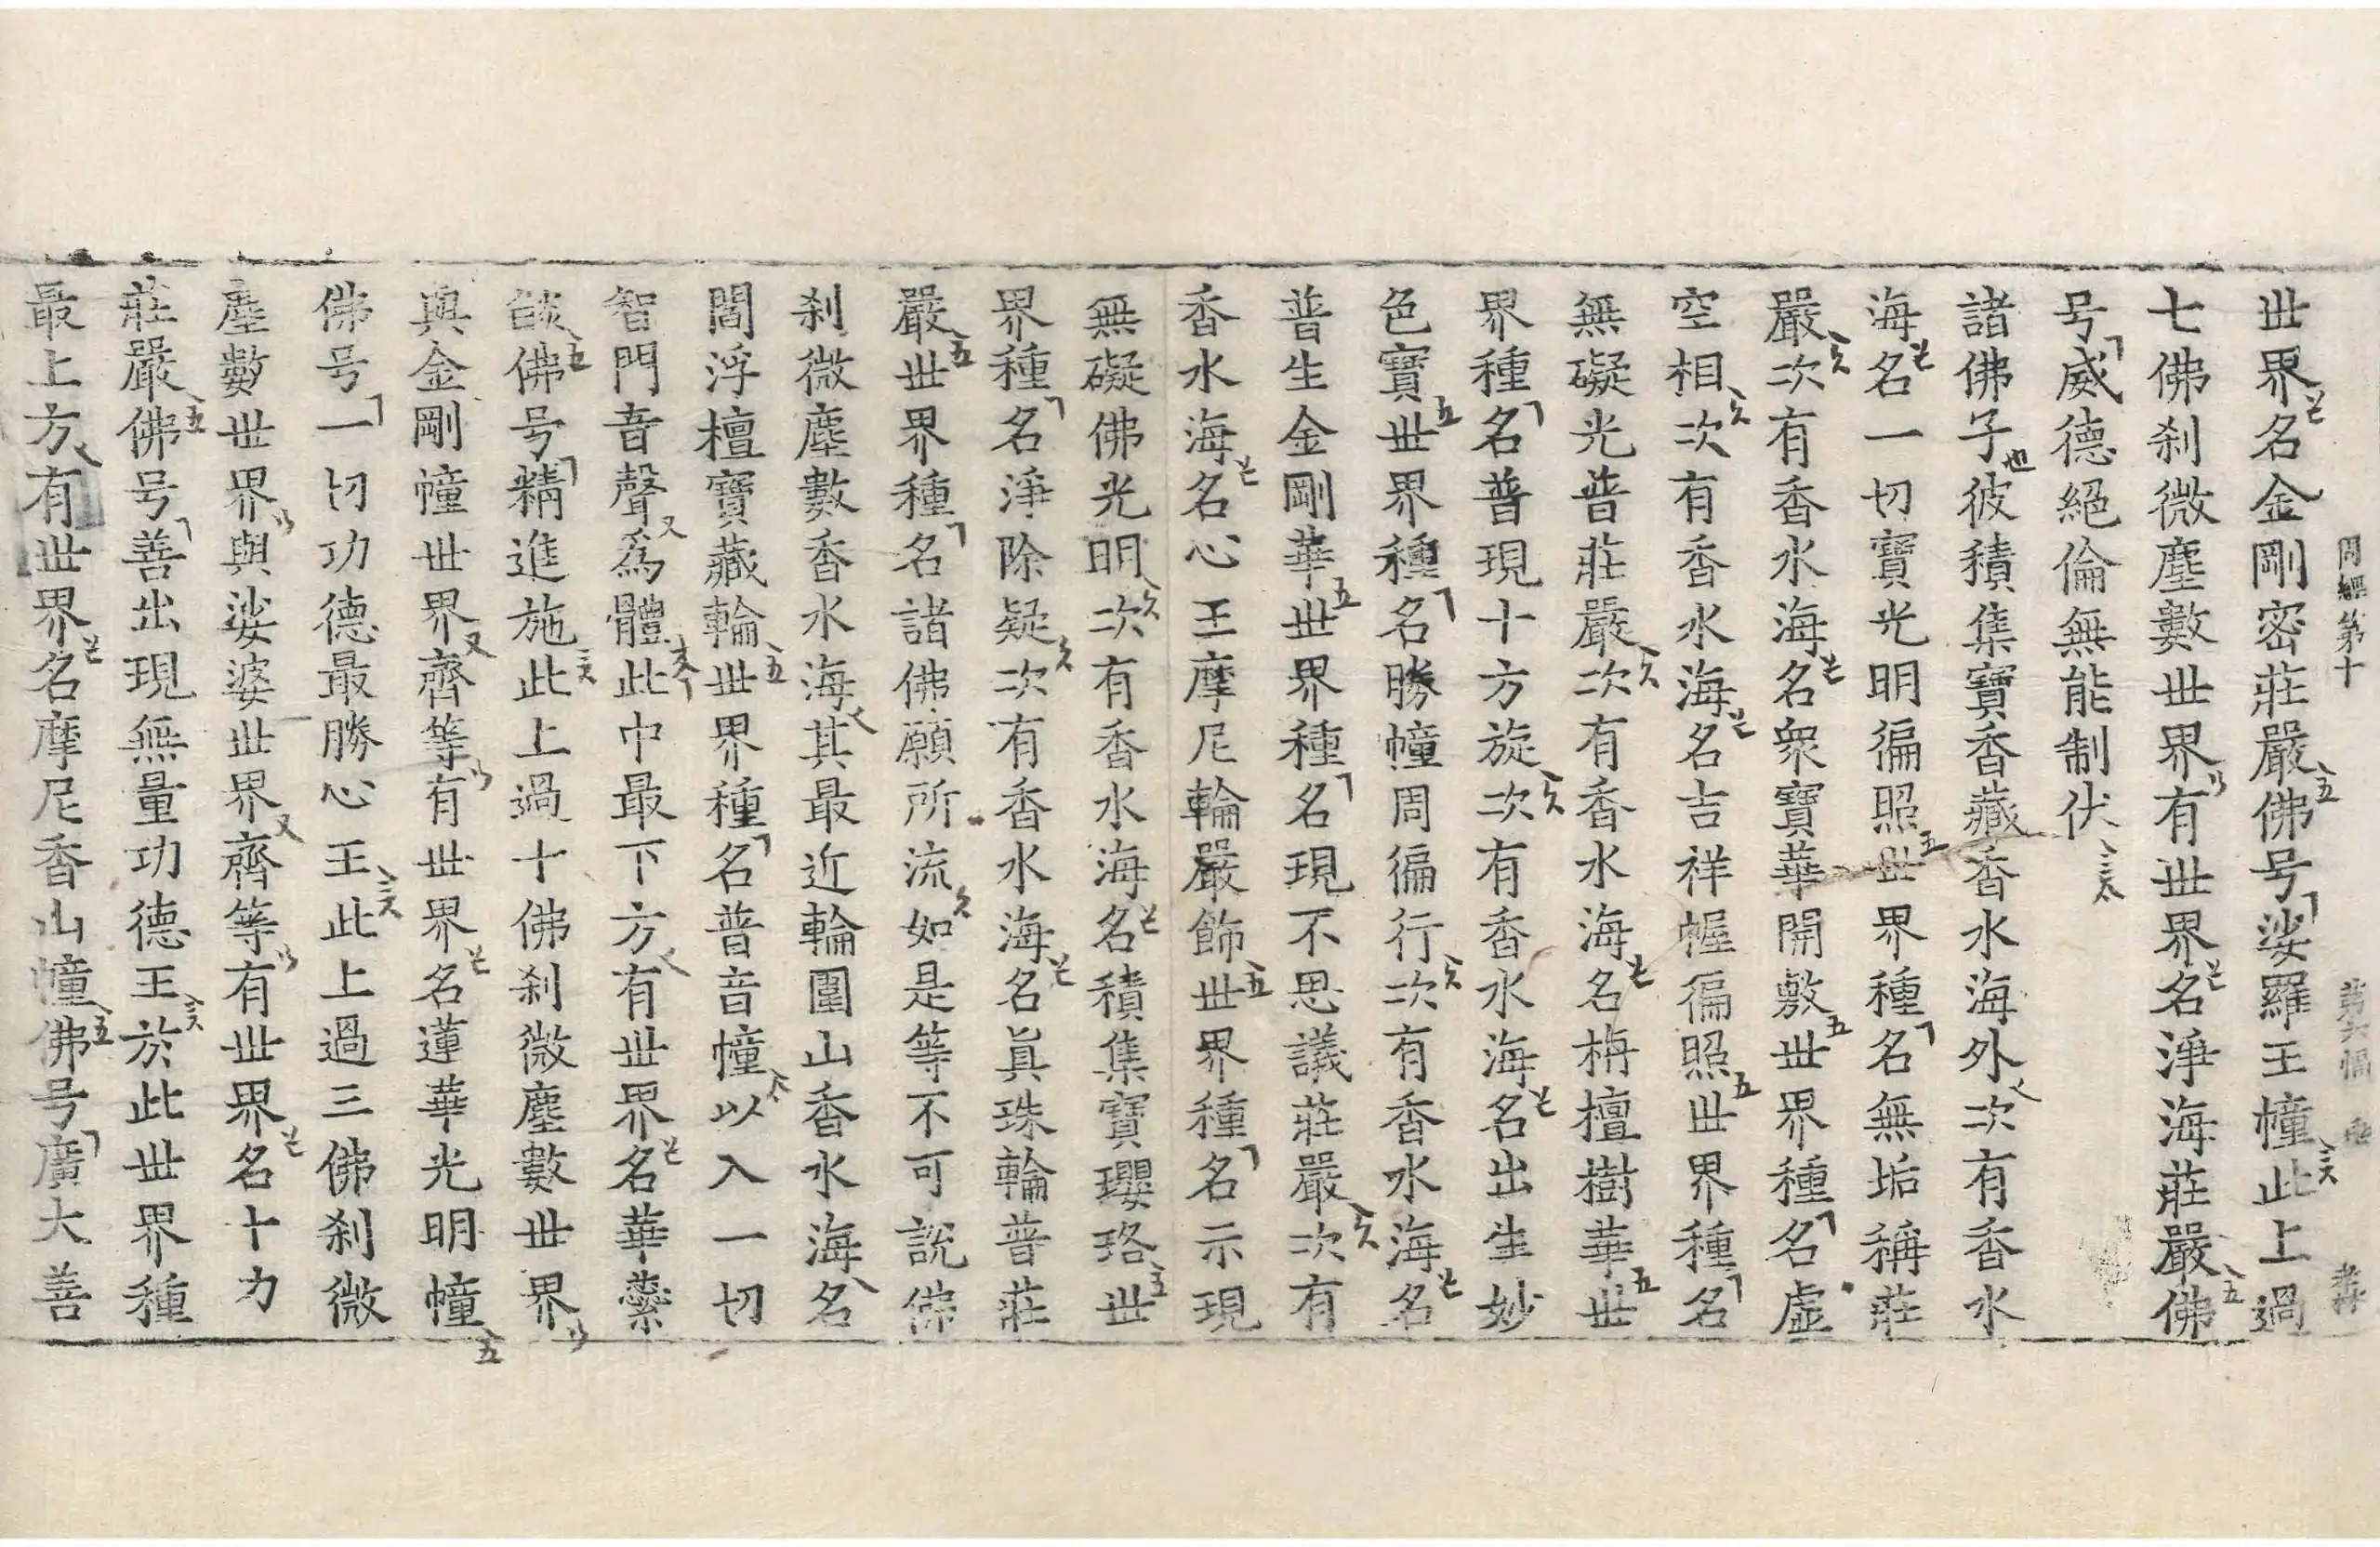 周經第十
世界名金剛密莊嚴佛号娑羅王幢此上過
七佛刹微塵數世界有世界名淨海莊嚴佛
号威德絕倫無能制伏
諸佛子彼積集寶香藏香水海外次有香水
海名一切寶光明徧照世界種名無垢稱莊
嚴次有香水海名衆寶華開敷世界種名虛
空相次有香水海名吉祥幄徧照世界種名
無礙光普莊嚴次有香水海名栴檀樹華世
界種名普現十方旋次有香水海名出生妙
色寶世界種名勝幢周徧行次有香水海名
普生金剛華世界種名現不思議莊嚴次有
香水海名心王摩尼輪嚴飾世界種名示現
無礙佛光明次有香水海名積集寶瓔珞世
界種名淨除疑次有香水海名真珠輪普莊
嚴世界種名諸佛願所流如是等不可說佛
刹微塵數香水海其最近輪圍山香水海名
閻浮檀寶藏輪世界種名普音幢以入一切
智門音聲爲體此中最下方有世界名華蘂
𦦨佛号精進施此上過十佛刹微塵數世界
與金剛幢世界齊等有世界名蓮華光明幢
佛号一切功德最勝心王此上過三佛刹微
塵數世界與娑婆世界齊等有世界名十力
莊嚴佛号善出現無量功德王於此世界種
最上方有世界名摩尼香山幢佛号廣大善